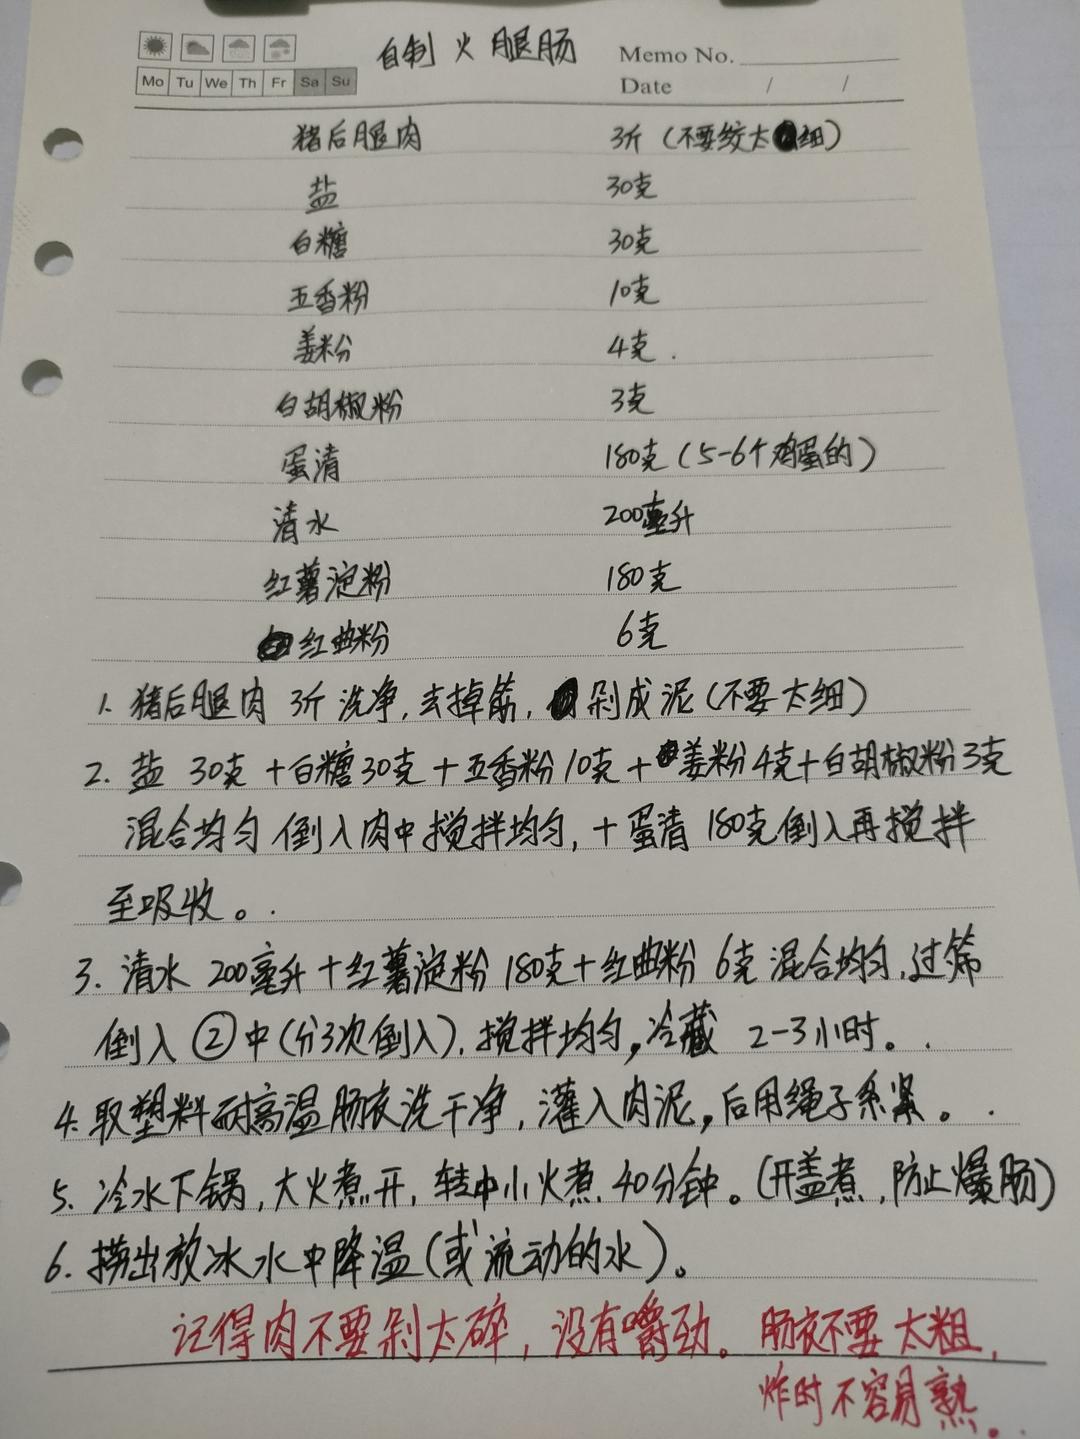 自制火腿肠
Memo No.
Mo Tu We Th Fr Sa Su
Date / /
猪后腿肉 3斤（不要绞太细）
盐 30克
白糖 30克
五香粉 10克
姜粉 4克.
白胡椒粉 3克
蛋清 180克（5-6个鸡蛋的）
清水 200毫升
红薯淀粉 180克
红曲粉 6克
1. 猪后腿肉 3斤 洗净，去掉筋，剁成泥（不要太细）
2. 盐 30克+白糖30克+五香粉10克+姜粉4克+白胡椒粉3克
混合均匀 倒入肉中搅拌均匀，+蛋清 180克倒入再搅拌
至吸收。.
3. 清水 200毫升+红薯淀粉 180克+红曲粉 6克 混合均匀，过筛
倒入②中（分3次倒入），搅拌均匀，冷藏 2-3小时。.
4. 取塑料耐高温肠衣洗干净，灌入肉泥，后用绳子系紧。.
5. 冷水下锅，大火煮开，转中小火煮40分钟。（开盖煮，防止爆肠）
6. 捞出放冰水中降温（或流动的水）。
记得肉不要剁太碎，没有嚼劲。肠衣不要太粗，
炸时不容易熟。.